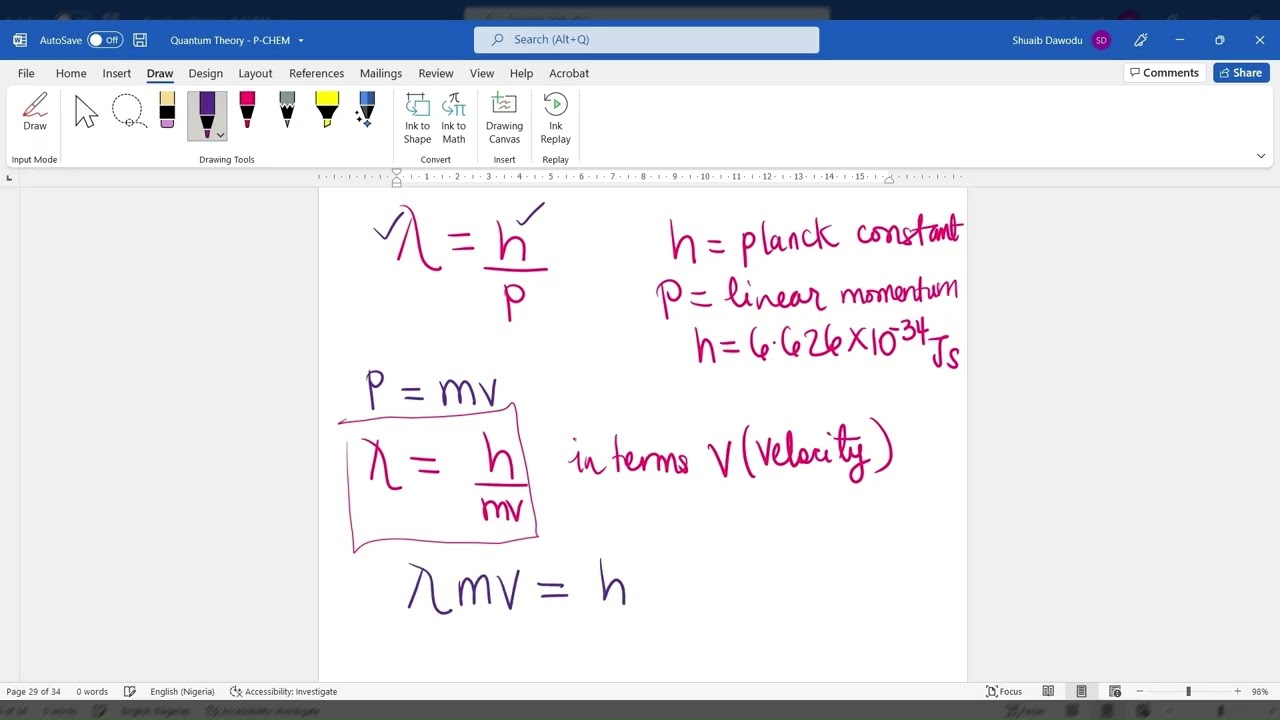 AutoSave Off Quantum Theory - P-CHEM Search (Alt+Q) Shuaib Dawodu SD
File Home Insert Draw Design Layout References Mailings Review View Help Acrobat Comments Share
Draw Ink to Shape Ink to Math Drawing Canvas Ink Replay
Input Mode Drawing Tools Convert Insert Replay
1 2 3 4 5 6 7 8 9 10 11 12 13 14 15
λ = h/p
h = planck constant
P = linear momentum
h = 6.626×10⁻³⁴ Js
P = mv
λ = h/mv in terms v (velocity)
λmv = h
Page 29 of 34 0 words English (Nigeria) Accessibility: Investigate Focus 98%